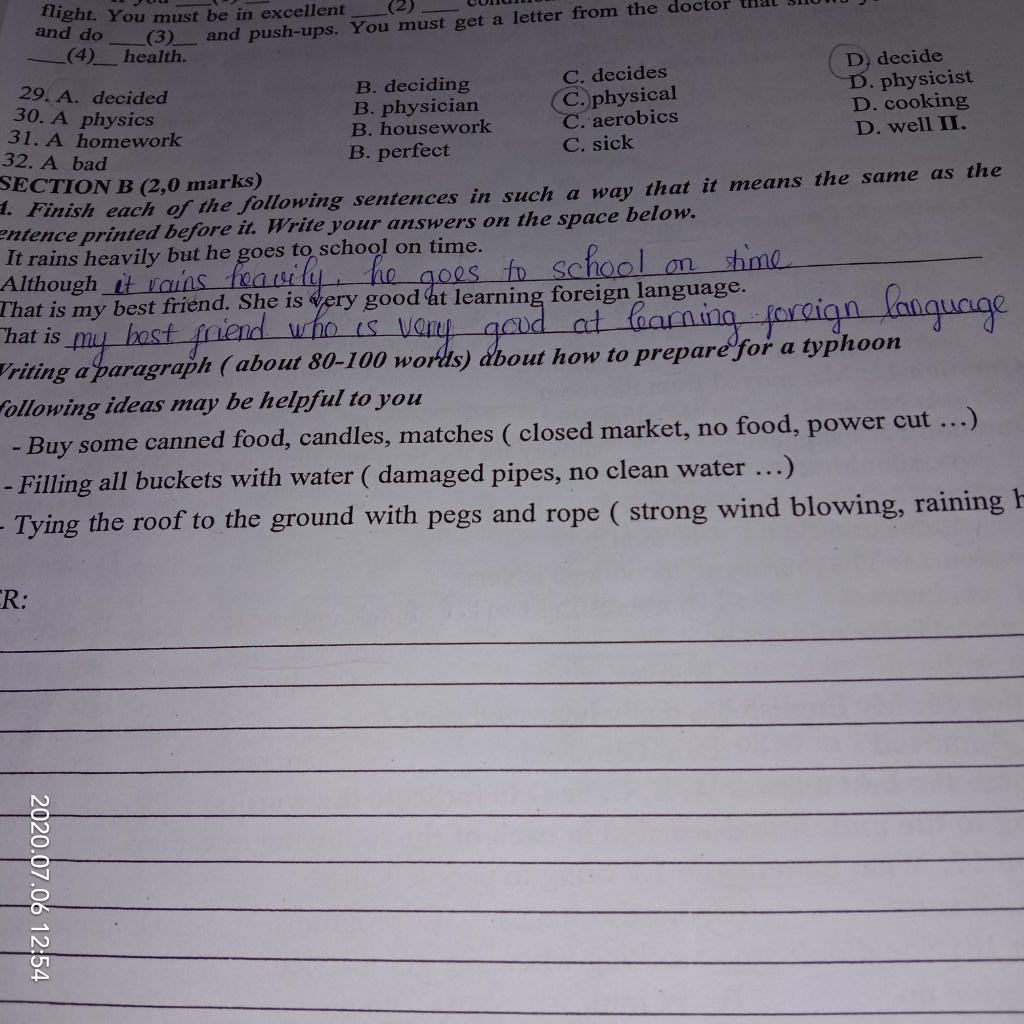 flight. You must be in excellent ___(2)___
and do ___(3)__ and push-ups. You must get a letter from the doctor that
___(4)__ health.
29. A. decided B. deciding C. decides D. decide
30. A physics B. physician C. physical D. physicist
31. A homework B. housework C. aerobics D. cooking
32. A bad B. perfect C. sick D. well II.
SECTION B (2,0 marks)
1. Finish each of the following sentences in such a way that it means the same as the
entence printed before it. Write your answers on the space below.
It rains heavily but he goes to school on time.
Although it rains heavily, he goes to school on time
That is my best friend. She is very good at learning foreign language.
That is my best friend who is very good at learning foreign language
Writing a paragraph ( about 80-100 words) about how to prepare for a typhoon
following ideas may be helpful to you
- Buy some canned food, candles, matches ( closed market, no food, power cut …)
- Filling all buckets with water ( damaged pipes, no clean water …)
- Tying the roof to the ground with pegs and rope ( strong wind blowing, raining
R:
2020.07.06 12:54